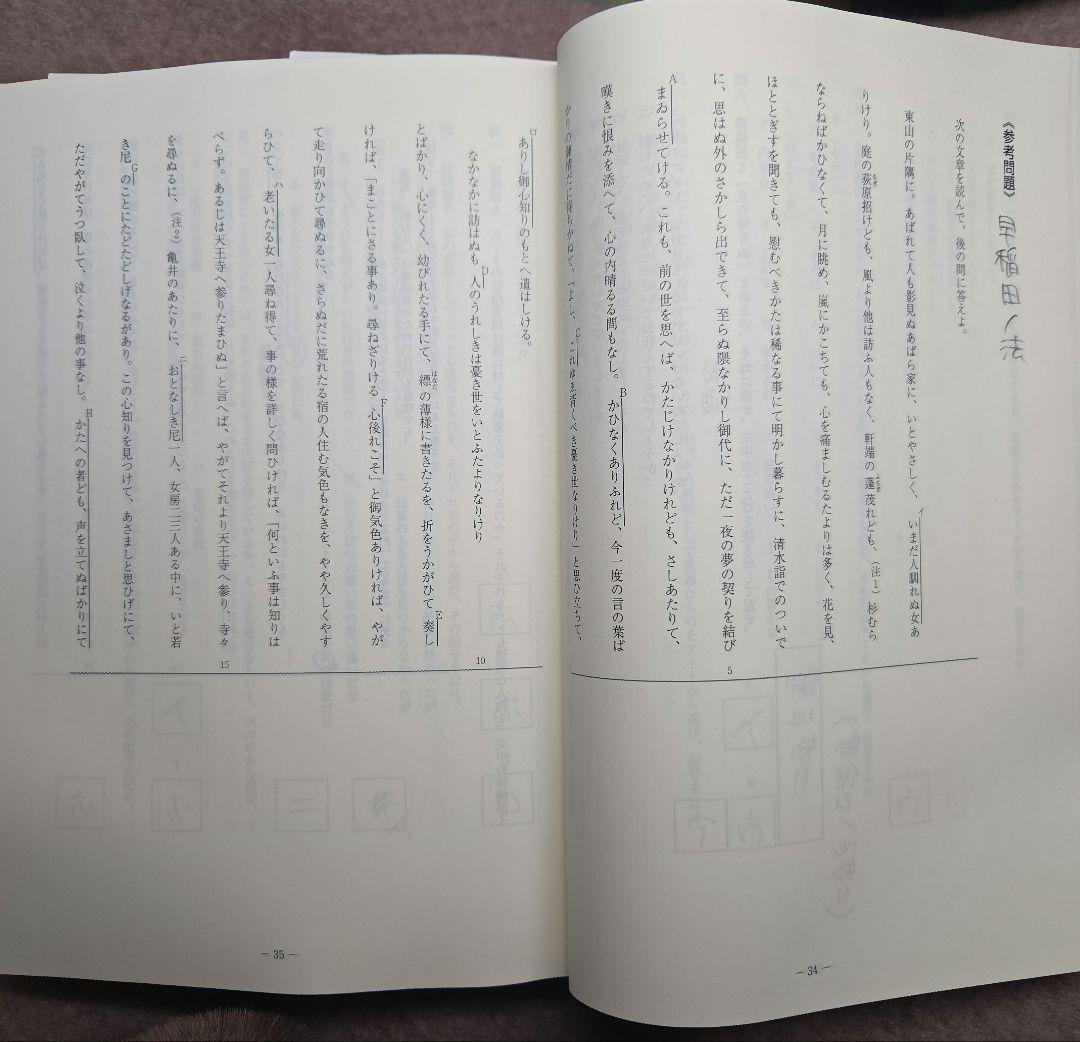 《参考問題》 早稲田／法
次の文章を読んで、後の問に答えよ。
東山の片隅に、あばれて人も影見ぬあばら家に、いとやさしく、イいまだ人馴れぬ女あ
りけり。庭の荻原招けども、風より他は訪ふ人もなく、軒端の蓬茂れども、（注１）杉むら
ならねばかひなくて、月に眺め、嵐にかこちても、心を痛ましむるたよりは多く、花を見、
ほととぎすを聞きても、慰むべきかたは稀なる事にて明かし暮らすに、清水詣でのついで
に、思はぬ外のさかしら出できて、至らぬ隈なかりし御代に、ただ一夜の夢の契りを結び
5
Aまゐらせてける。これも、前の世を思へば、かたじけなかりけれども、さしあたりて、
嘆きに恨みを添へて、心の内晴るる間もなし。Bかひなくありふれど、今一度の言の葉ば
かりの御情だに待ちかねて、「よし、Cこれゆゑ背くべき憂き世なりけり」と思ひ立ちて、
― 34 ―
ロありし御心知りのもとへ遣はしける。
なかなかに訪はぬもD人のうれしきは憂き世をいとふたよりなりけり
10
とばかり、心にくく、幼びれたる手にて、縹の薄様に書きたるを、折をうかがひてE奏し
ければ、「まことにさる事あり。尋ねざりけるF心後れこそ」と御気色ありければ、やが
て走り向かひて尋ぬるに、さらぬだに荒れたる宿の人住む気色もなきを、やや久しくやす
らひて、ハ老いたる女一人尋ね得て、事の様を詳しく問ひければ、「何といふ事は知りは
べらず。あるじは天王寺へ参りたまひぬ」と言へば、やがてそれより天王寺へ参り、寺々
15
を尋ぬるに、（注２）亀井のあたりに、ニおとなしき尼一人、女房二三人ある中に、いと若
き尼Gのことにたどたどしげなるがあり。この心知りを見つけて、あさましと思ひげにて、
ただやがてうつ臥して、泣くより他の事なし。Hかたへの者ども、声を立てぬばかりにて
― 35 ―